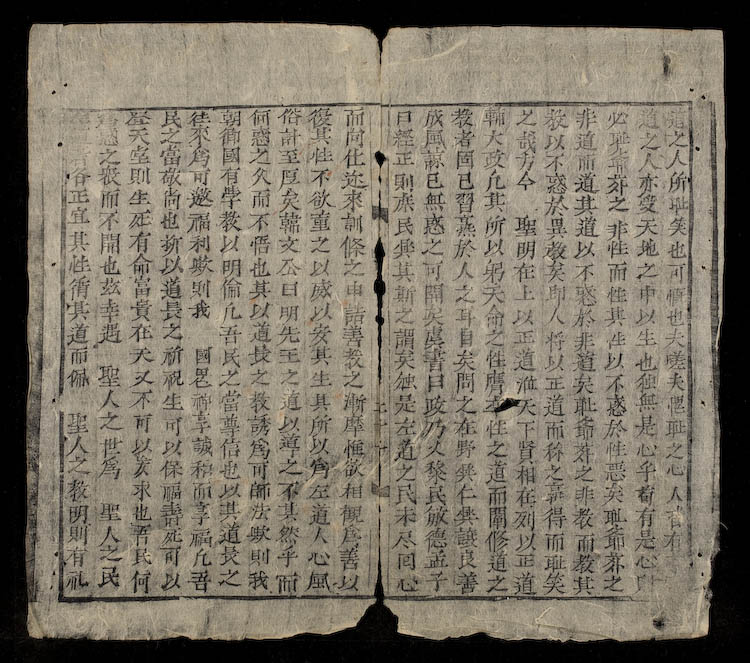 之人所耻笑也可悟也夫嗟夫愧耻之心人皆有
道之人亦受天地之中以生也独無是心乎苟有是心則
必耻爺莽之非性而性其性以不惑於性惡矣耻爺莽之
非道而道其道以不惑於非道矣耻爺莽之非教而教其
教以不惑於異教矣即人將以正道而称之嘉得而耻笑
之哉方今 聖明在上以正道淮天下賢相在列以正道
輔大政凡其所以躬天命之性膺率性之道而闡修道之
教者固已習熹於人之耳目矣問之在野興仁興讓良善
成風諒已無惑之可開矣虞書曰政乃乂黎民敏德孟子
曰經正則庶民興其斯之謂矣独是左道之民未尽回心
而向化迩來訓條之申誥善教之漸摩惟欲相觀為善以
復其性不欲董之以威以安其生其所以為左道人心風
俗計至厚矣韓文公曰明先王之道以導之不其然乎而
何惑之久而不悟也其以道長之教誘為可師法歟則我
朝御國有學教以明倫凡吾民之當尊信也以其道長之
往來為可邀福利歟則我 國恩神享誠和而享福凡吾
民之當敬向也抑以道長之祈祝生可以保福壽死可以
登天堂則生死有命富貴在天又不可以妄求也吾民何
為惑之而不開也茲幸遇 聖人之世為 聖人之民
正宜其性循其道而佩 聖人之教明則有礼